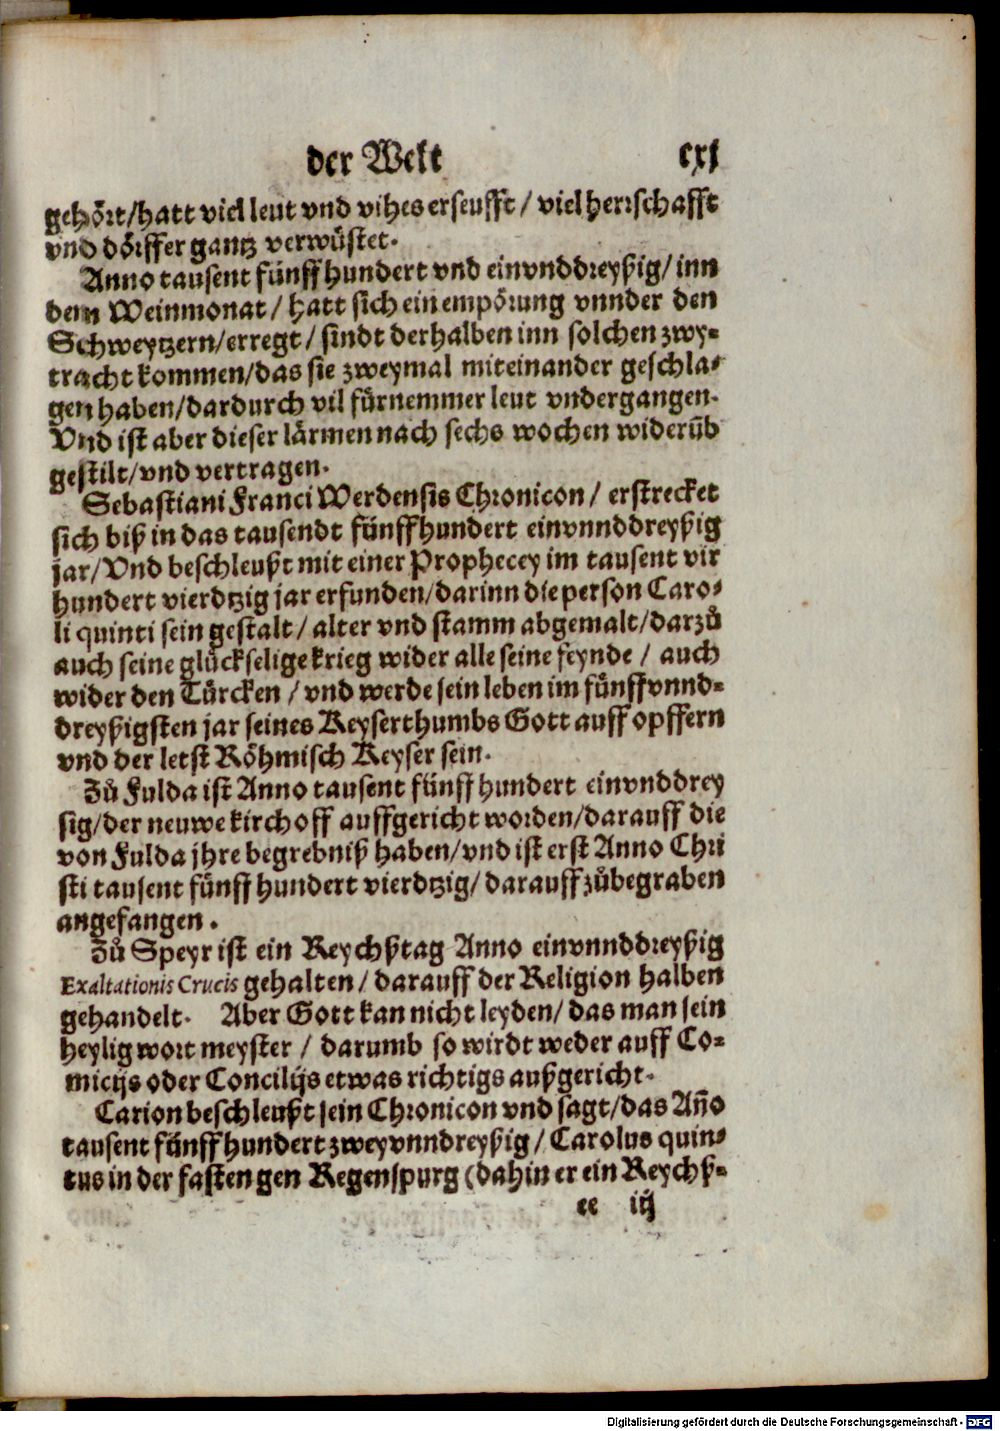 der Welt cxj
gehört/hatt viel leut vnd vihes erseufft / viel herrschafft
vnd dörffer gantz verwüstet.
Anno tausent fünff hundert vnd einvnddreyßig/ inn
dem Weinmonat / hatt sich ein empörung vnnder den
Schweytzern/erregt / sindt derhalben inn solchen zwy-
tracht kommen/das sie zweymal miteinander geschla-
gen haben/dardurch vil fürnemmer leut vndergangen.
Vnd ist aber dieser lärmen nach sechs wochen widerūb
gestilt/vnd vertragen.
Sebastiani Franci Werdensis Chronicon / erstrecket
sich biß in das tausendt fünffhundert einvnnddreyßig
jar/Vnd beschleußt mit einer Prophecey im tausent vir
hundert vierdtzig jar erfunden/darinn die person Caro-
li quinti sein gestalt / alter vnd stamm abgemalt/darzů
auch seine glückselige krieg wider alle seine feynde / auch
wider den Türcken / vnd werde sein leben im fünffvnnd-
dreyßigsten jar seines Keyserthumbs Gott auff opffern
vnd der letst Röhmisch Keyser sein.
Zů Fulda ist Anno tausent fünff hundert einvnddrey
sig/der neuwe kirchoff auffgericht worden/darauff die
von Fulda jhre begrebniß haben/vnd ist erst Anno Chri
sti tausent fünff hundert vierdtzig/darauff zůbegraben
angefangen.
Zů Speyr ist ein Reychßtag Anno einvnnddreyßig
Exaltationis Crucis gehalten / darauff der Religion halben
gehandelt. Aber Gott kan nicht leyden/ das man sein
heylig wort meyster / darumb so wirdt weder auff Co-
micijs oder Concilijs etwas richtigs außgericht.
Carion beschleußt sein Chronicon vnd sagt/das Año
tausent fünff hundert zweyvnndreyßig / Carolus quin-
tus in der fasten gen Regenspurg (dahin er ein Reychß-
ee iij
Digitalisierung gefördert durch die Deutsche Forschungsgemeinschaft - DFG